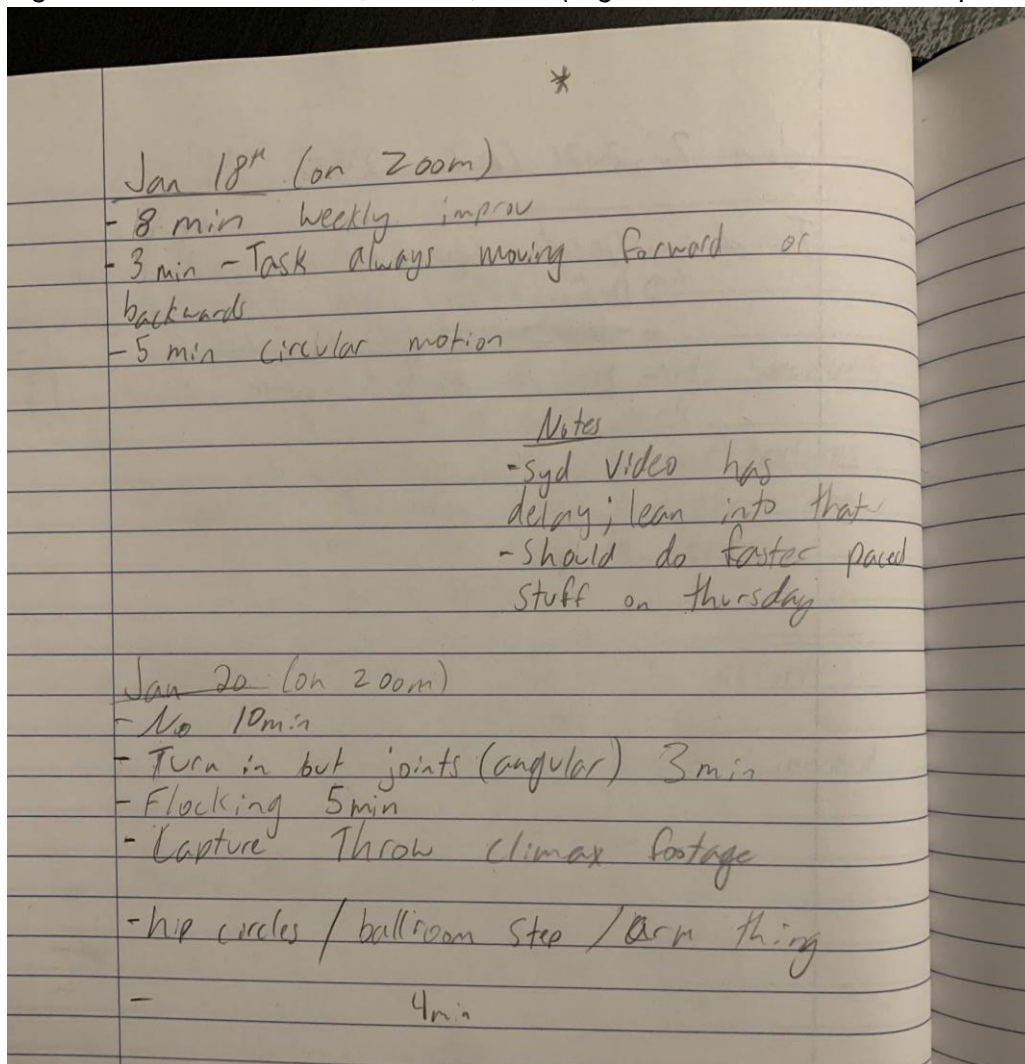 *
Jan 18th (on Zoom)
- 8 min weekly improv
- 3 min - Task always moving forward or
backwards
- 5 min circular motion
Notes
- Syd video has
delay; lean into that
- Should do faster paced
stuff on thursday
Jan 20 (on zoom)
- No 10min
- Turn in but joints (angular) 3min
- Flocking 5min
- Capture Throw climax footage
- hip circles / ballroom step / arm thing
- 4min